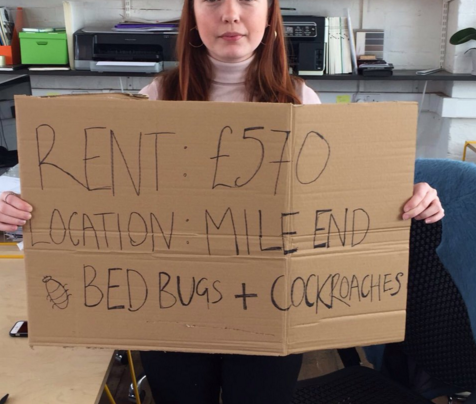 RENT: £570
LOCATION: MILE END
BED BUGS + COCKROACHES